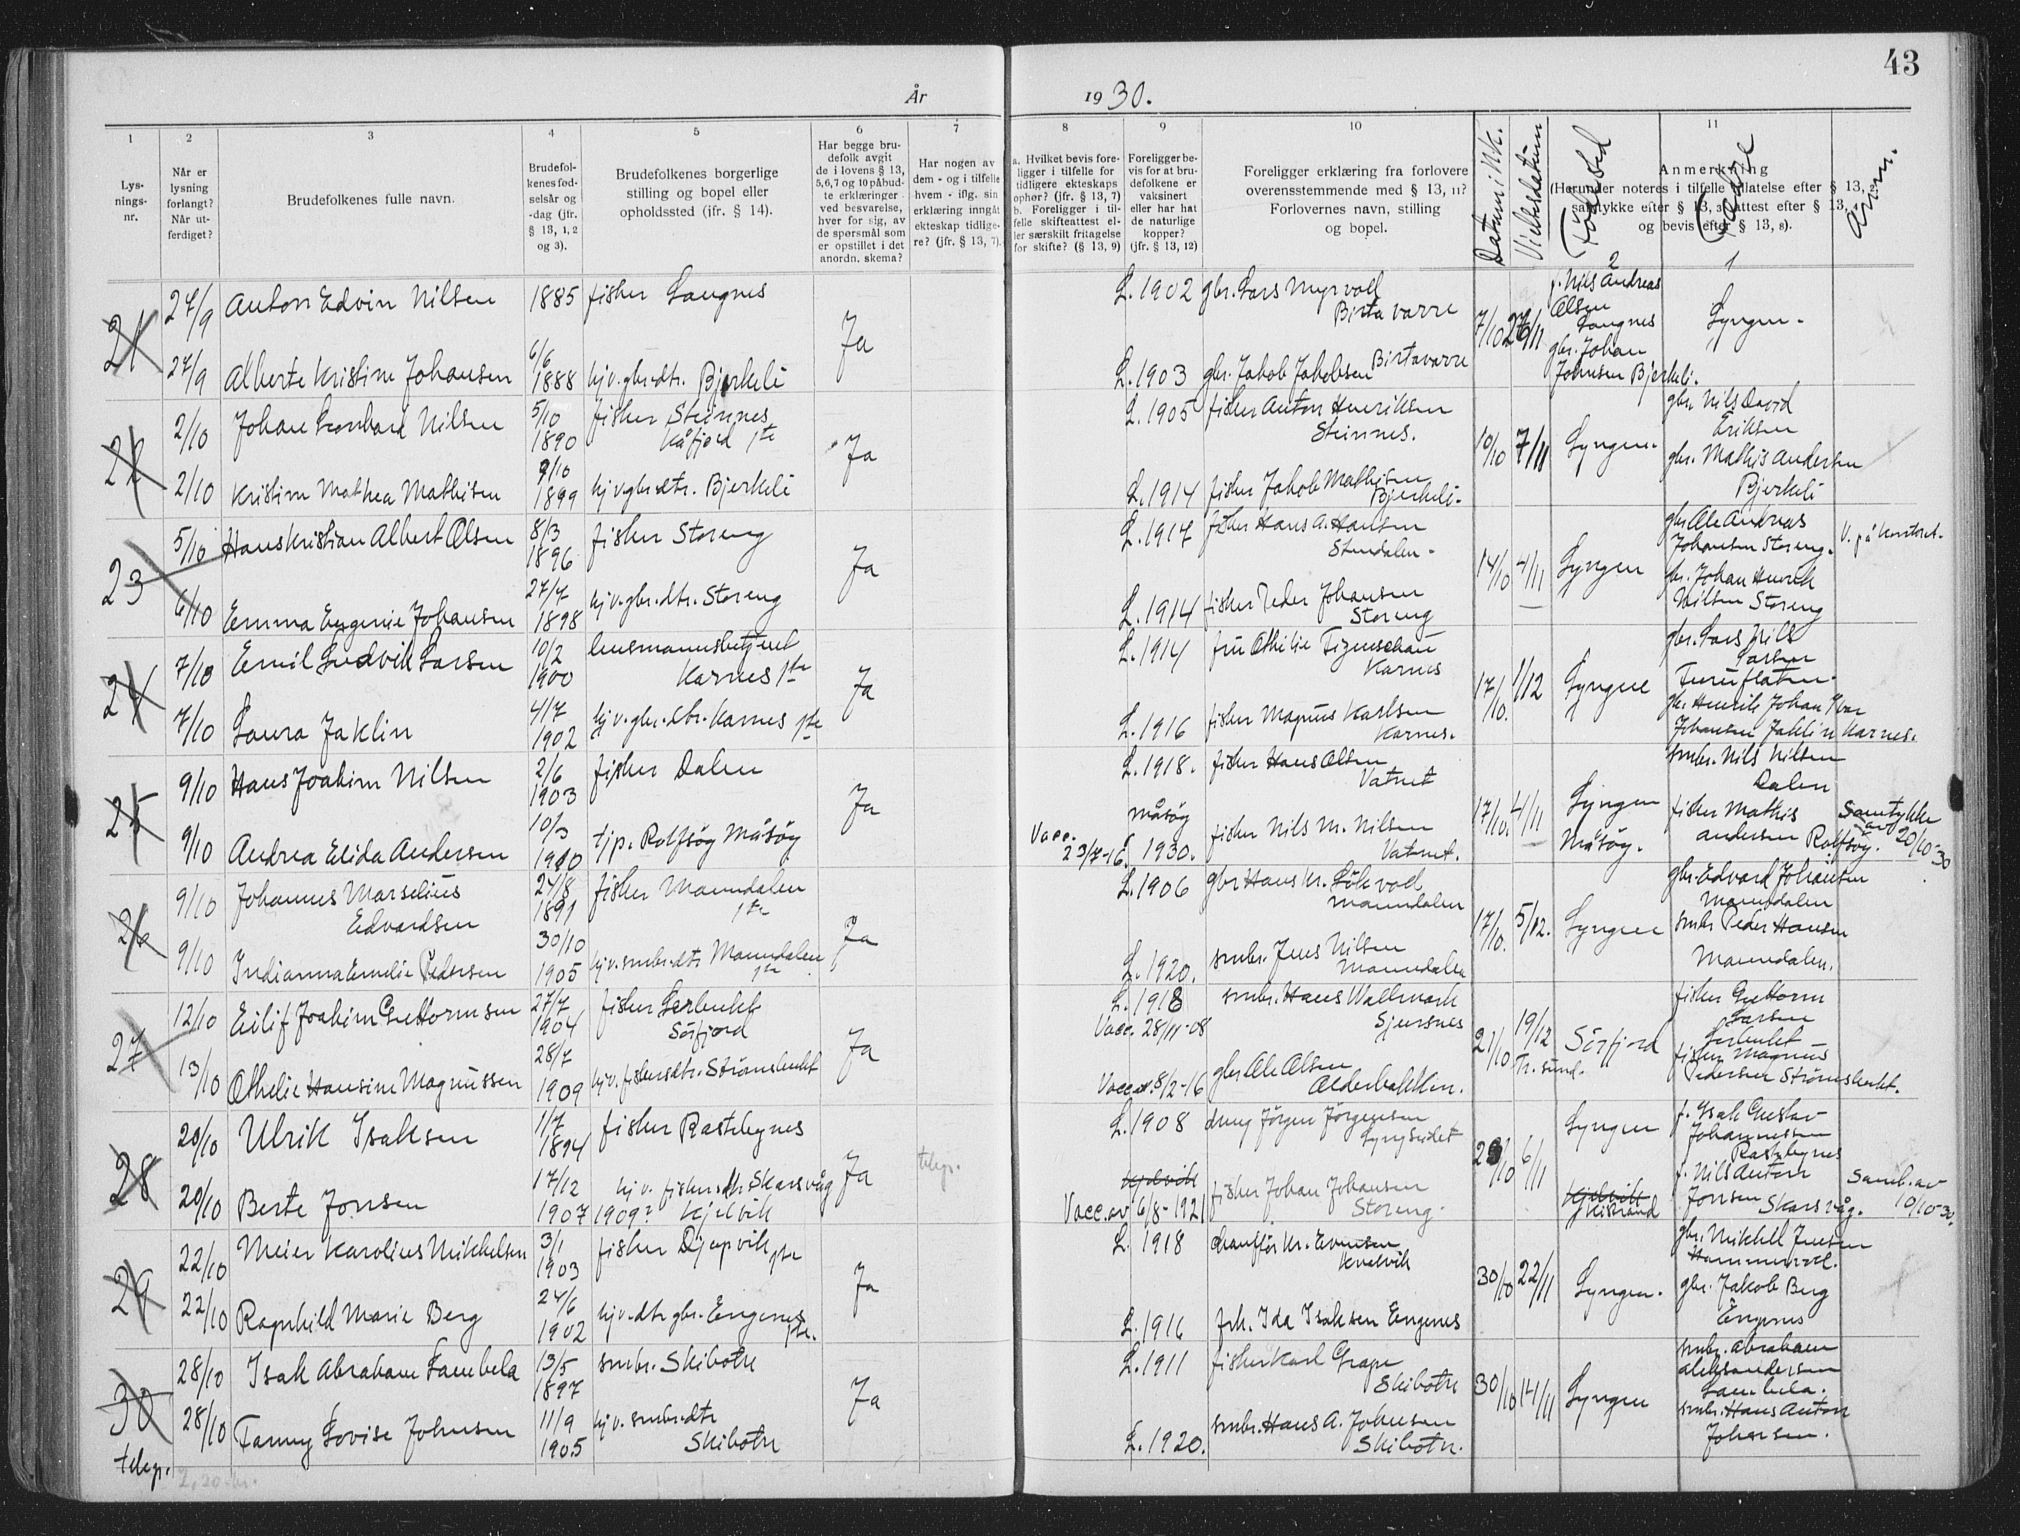 43
År 1930.
1 2 3 4 5 6 7 8 9 10 11
Lys-
nings-
nr.
Når er
lysning
forlangt?
Når ut-
ferdiget?
Brudefolkenes fulle navn.
Brudefol-
kenes fød-
selsår og
-dag (jfr.
§ 13, 1, 2
og 3).
Brudefolkenes borgerlige
stilling og bopel eller
opholdssted (ifr. § 14).
Har begge bru-
defolk avgit
de i lovens § 13,
5,6,7 og 10 påbud-
te erklæringer
ved besvarelse,
hver for sig, av
de spørsmål som
er opstillet i det
anordn. skema?
Har nogen av
dem - og i tilfelle
hvem - iflg. sin
erklæring inngått
ekteskap tidlige-
re? (jfr. § 13, 7).
a. Hvilket bevis fore-
ligger i tilfelle for
tidligere ekteskaps
ophør? (jfr. § 13, 7)
b. Foreligger i til-
felle skifteattest el-
ler særskilt fritagelse
for skifte? (§ 13, 9)
Foreligger be-
vis for at bru-
defolkene er
vaksinert
eller har hat
de naturlige
kopper?
(jfr. § 13, 12)
Foreligger erklæring fra forlovere
overensstemmende med § 13, 11?
Forlovernes navn, stilling
og bopel.
Datum
Vielsesdatum
Fødested
2
Fædre
1
Anm.
Anmerkning
(Herunder noteres i tilfelle tillatelse efter § 13,
samtykke efter § 13, 3, attest efter § 13, 4
og bevis efter § 13, 8).
21
27/9 Anton Edvin Nilsen 1885 fisker Langnes
L. 1902 gbr. Lars Myrvoll
Birtavarre
f. Nils Andreas
Olsen
Langnes
Ja 7/10 Lyngen.
27/9 Alberte Kristine Johansen 6/6 1888 hjv. gbr.dtr. Bjerkeli
L. 1903 gbr. Jakob Jakobsen Birtavarre
gbr. Johan
Johnsen Bjerkeli.
22
2/10 Johan Leonhard Nilsen 5/10 1890 fisker Steinnes
Kåfjord
L. 1905 fisker Anton Henriksen
Steinnes.
gbr. Nils David
Eriksen
Ja 10/10 7/11 Lyngen.
2/10 Kristine Mathea Mathisen 9/10 1899 hjv gbr.dtr. Bjerkeli
L. 1914 fisker Jakob Mathisen
Bjerkeli.
gbr. Mathis Andersen
Bjerkeli
23
5/10 Hans Kristian Albert Olsen 8/3 1896 fisker Storeng
L. 1917 fisker Hans A. Hansen
gbr Ole Andreas
Johansen Storeng.
V. på kontoret.
Ja 14/10 4/11 Lyngen
6/10 Emma Eugenie Johansen 27/7 1898 hjv. gbr.dtr. Storeng
L. 1914 fisker Peder Johansen
Storeng
gbr. Johan Henrik
Nilsen Storeng
24
7/10 Emil Ludvik Larsen 10/2 1900 lensmannsbetjent
Karnes 1te
L. 1914 fru Othilie Figenschau
Karnes
gbr. Lars Nils
Larsen
Furuflaten.
Ja 17/10. 1/12 Lyngen
7/10 Laura Jaklin 4/7 1902 hjv. gbr. dtr. Karnes 1te
L. 1916 fisker Magnus Karlsen
Karnes.
gbr. Henrik Johan
Johansen Jaklin Karnes.
25
9/10 Hans Joakim Nilsen 2/6 1903 fisker Dalen
L. 1918. fisker Hans Olsen
Vatnet
smbr. Nils Nilsen
Dalen
Ja 17/10. 4/11 Lyngen
Måsøy.
9/10 Andrea Elida Andersen 10/3 1910 tjp. Rolfsøy Måsøy
Vacc. 23/7-16 Måsøy 1930.
fisker Nils M. Nilsen
Vatnet.
fisker Mathis
Andersen Rolfsøy.
Samtykke
av 20/10-30
26
9/10 Johannes Marselius
Edvardsen
24/8 1891 fisker Manndalen
1te
L. 1906 gbr Hans Kr. Løkvoll
Manndalen
gbr. Edvard Johansen
Manndalen
Ja 17/10. 5/12. Lyngen
9/10 Indianna Emelie Pedersen 30/10 1905 hjv. smbr.dtr Manndalen
1te
L. 1920. smbr. Jens Nilsen
Manndalen
smbr Peder Hansen
Manndalen.
27
12/10 Eilif Joakim Guttormsen 27/7 1904 fisker
Sörfjord
L. 1918
Vacc. 28/11-08
smbr. Hans Wallmark
Sjursnes
fisker Guttorm
Larsen
Ja 21/10 19/12
Tr.sund.
Sörfjord
13/10 Othelie Hansine Magnussen 28/7 1909 hjv. fiskersdtr. Strømsbukt
Vacc. 8/2-16
gbr Ole Olsen
Olderbakken.
fisker Magnus
Pedersen Strømsbukt.
28
20/10 Ulrik Isaksen 1/7 1894 fisker Rastebynes
L. 1908 dreng Jörgen Jörgensen
Lyngseidet
Lyngen
f. Isak Gustav
Johannessen
Rastebynes
Ja telegr. 6/11
20/10 Berte Jonsen 17/12 1907 1909? hjv. fisker.dtr Skarsvåg
Kjelvik
Kjelvik
Vacc. av 6/8-1921
fisker Johan Johansen
Storeng.
Kjelvik
Kistrand
f. Nils Anton
Jonsen Skarsvåg.
Samb. av
10/10-30.
29
22/10 Meier Karolius Mikkelsen 3/1 1903 fisker Djupvik
1te
L. 1918 chauffør Kr. Evensen
Kvalvik
gbr. Mikkel Jensen
Hammervoll.
Ja 30/10 22/11 Lyngen.
22/10 Ragnhild Marie Berg 24/6 1902 hjv. dtr gbr. Engenes
1te.
L. 1916 frk. Ida Isaksen Engenes
gbr. Jakob Berg
Engenes
30
telegr.
28/10 Isak Abraham Lambela 13/5 1897 smbr. Skibotn
L. 1911 fisker Karl Grape
Skibotn
smbr. Abraham
Aleksandersen
Lambela.
Ja 30/10 14/11 Lyngen
28/10 Fanny Lovise Johnsen 11/9 1905 hjv. smbr.dtr
Skibotn
L. 1920. smbr. Hans A. Johnsen
Skibotn.
smbr. Hans Anton
Johnsen.
2,20 kr.